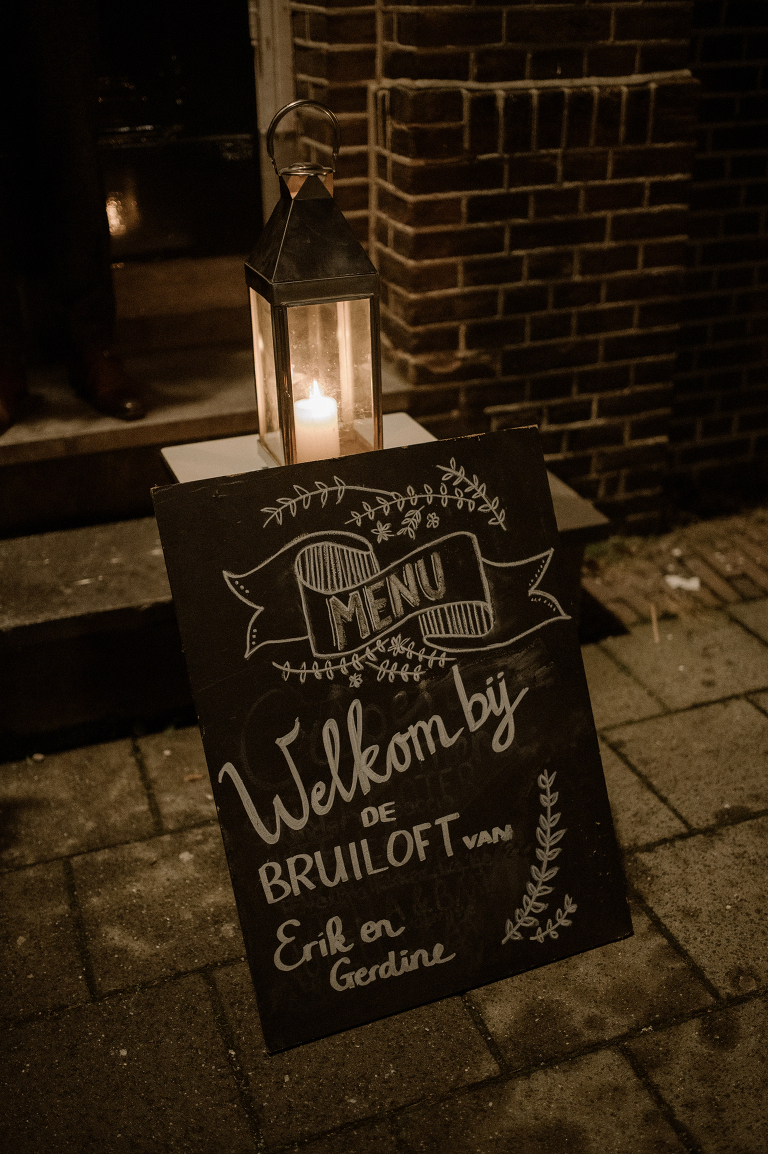 MENU
Welkom bij
DE
BRUILOFT VAN
Erik en
Gerdine